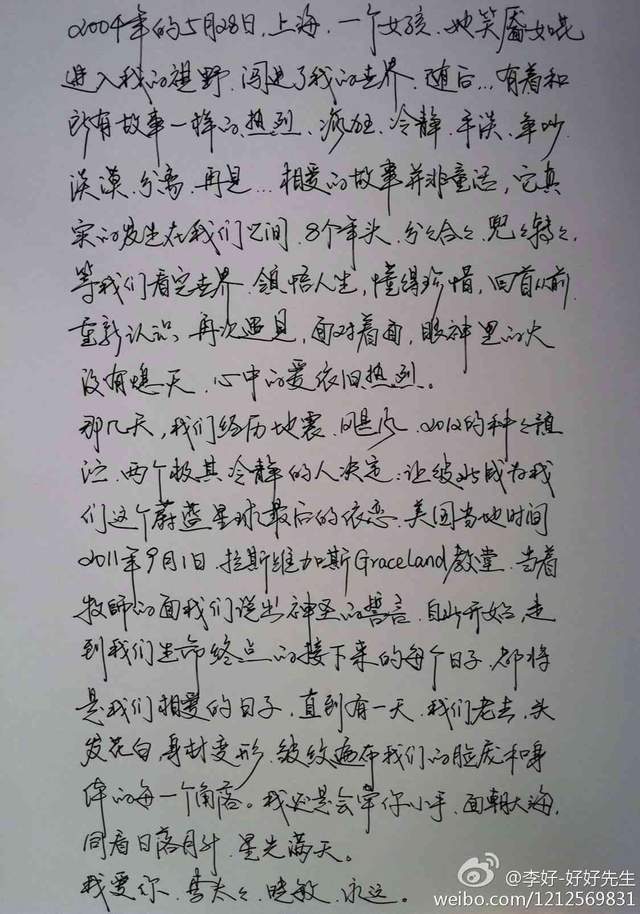 2004年的5月28日,上海,一个女孩,她笑靥如花
进入我的视野,闯进了我的世界,随后...有着和
所有故事一样的热烈、疯狂、冷静、平淡、争吵、
淡漠、分离、再见...相爱的故事并非童话,它真
实的发生在我们之间,8个年头,分分合合,兜兜转转,
等我们看完世界,领悟人生,懂得珍惜,回首从前,
重新认识,再次遇见,面对着面,眼神里的火
没有熄灭,心中的爱依旧热烈。
那几天,我们经历地震、飓风、2012的种种预
言,两个极其冷静的人决定:让彼此成为我
们这个蔚蓝星球最后的依恋,美国当地时间
2011年9月1日,拉斯维加斯Graceland教堂,当着
牧师的面我们说出神圣的誓言,自此开始,走
到我们生命终点的接下来的每个日子,都将
是我们相爱的日子,直到有一天,我们老去,头
发花白,身材变形,皱纹遍布我们的脸庞和身
体的每一个角落。我还是会牵你小手,面朝大海,
同看日落月升,星光满天。
我爱你,李太太,晓敏,永远。
@李好-好好先生
weibo.com/1212569831